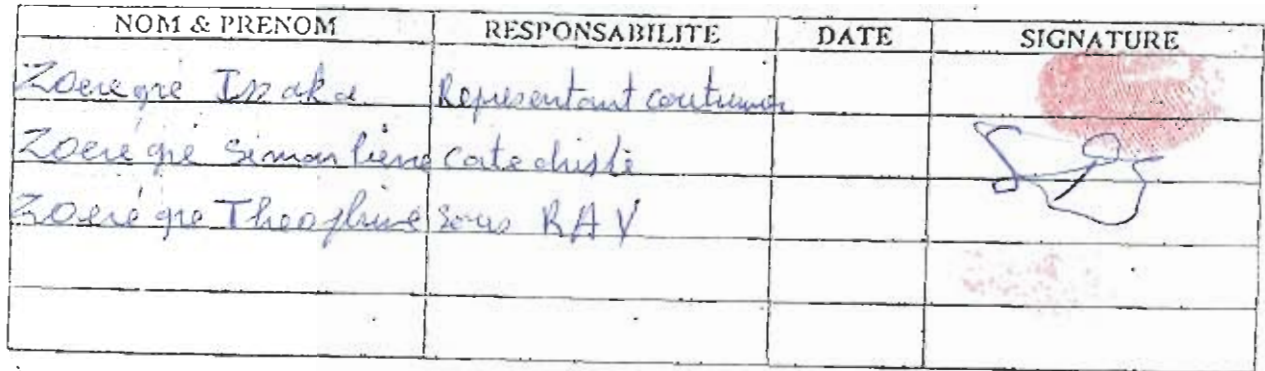 NOM & PRENOM RESPONSABILITE DATE SIGNATURE
Zoeregré Issaka Representant coutumier
Zoerégré Simon Pierre Catechiste
Zoerégré Theophine sous RAV